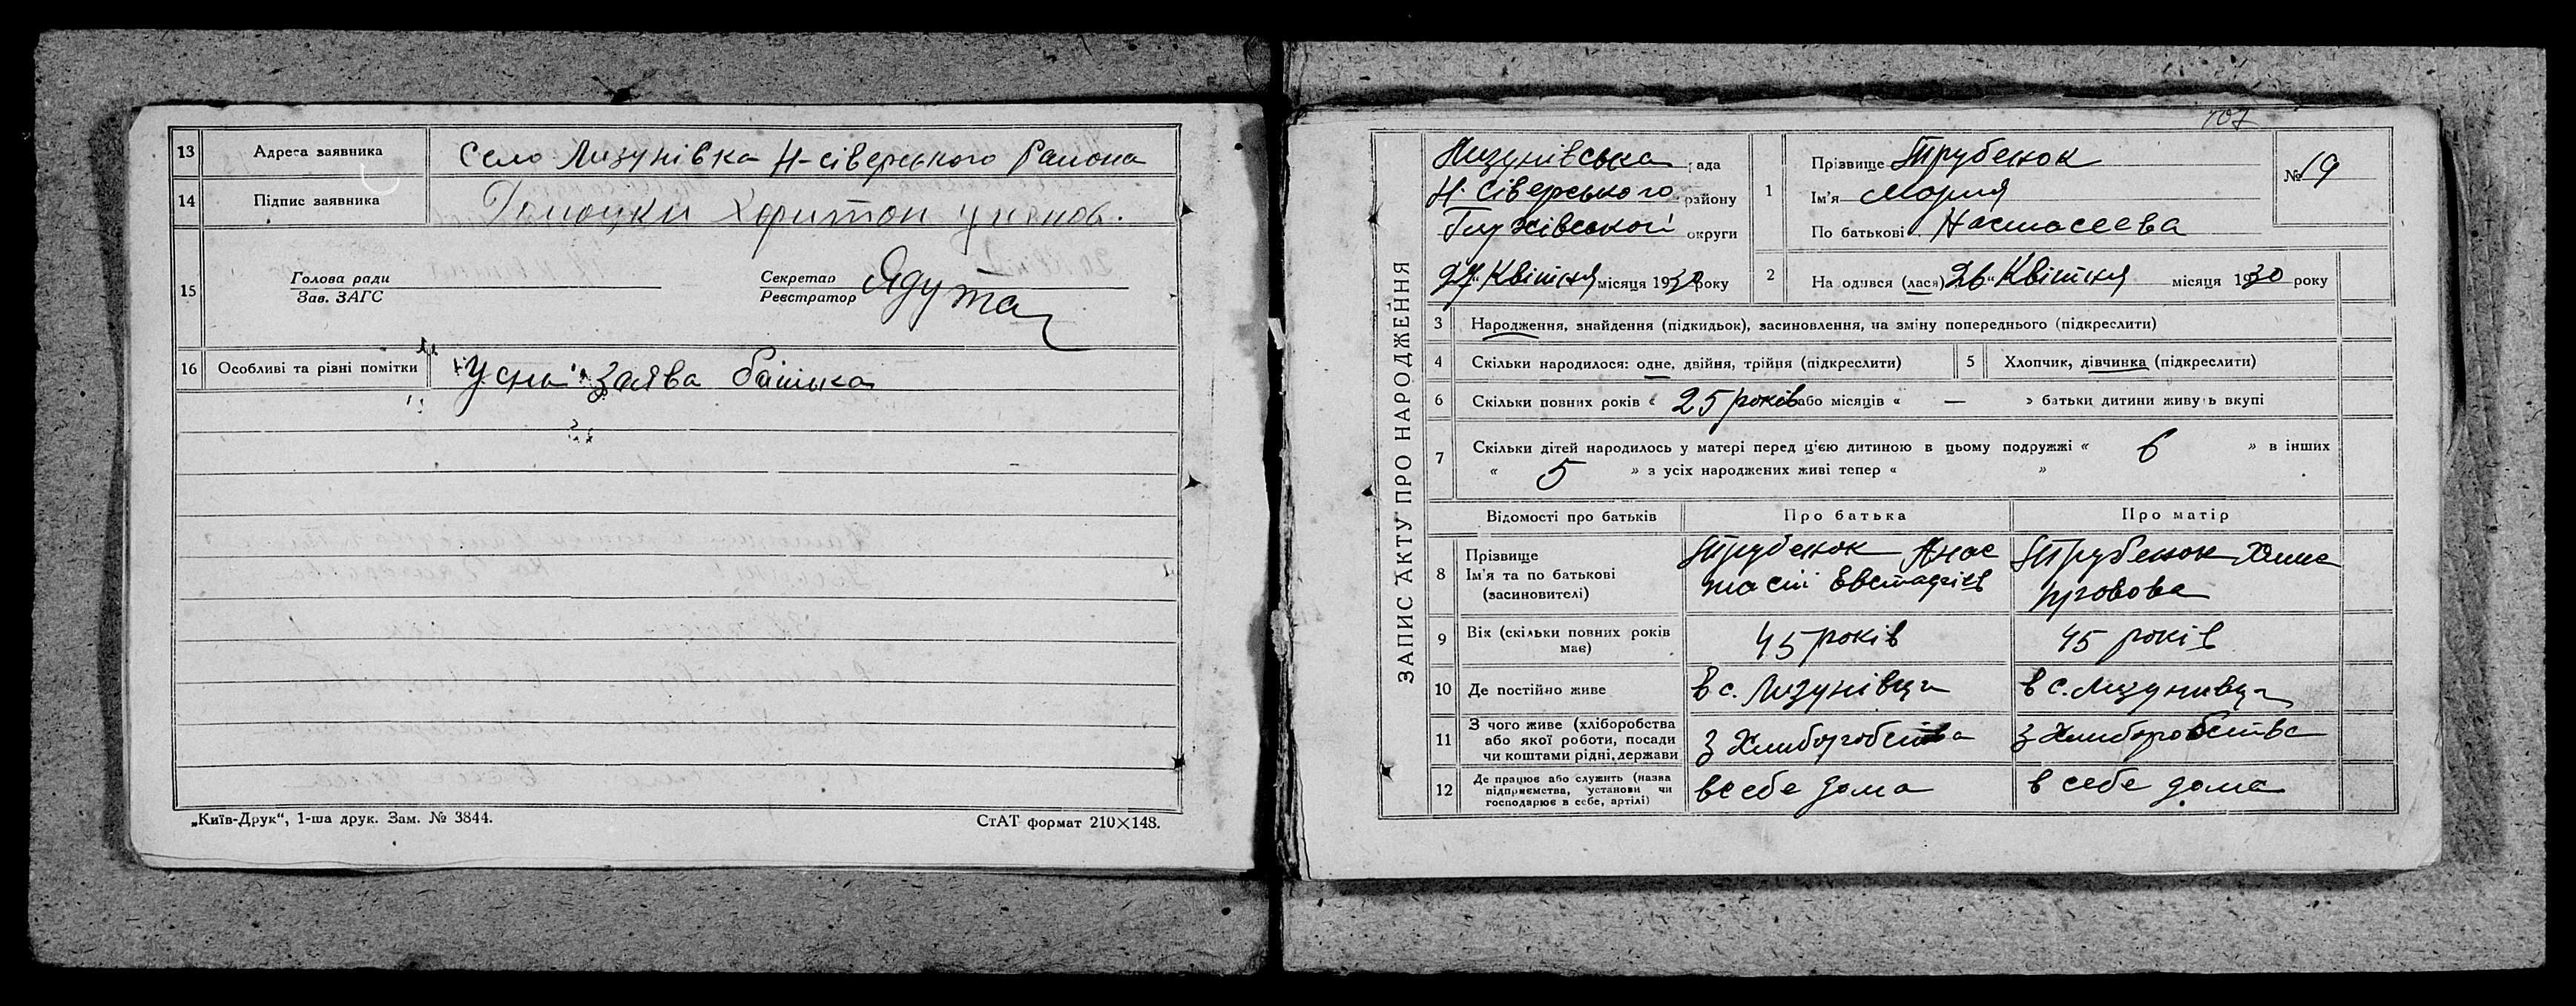 13 Адреса заявника Село Лизунівка Н-сіверського Района
14 Підпис заявника Харитон
15 Голова ради
Зав. ЗАГС
Секретар
Реєстратор Ядута
16 Особливі та різні помітки Усна заява батька
„Київ-Друк“, 1-ша друк. Зам. № 3844. СтАТ формат 210×148.
107
ЗАПИС АКТУ ПРО НАРОДЖЕННЯ
Лизунівська рада
Н. Сіверського району
Глухівської округи
27 „ Квітня місяця 1930 року
1 Прізвище Трубенок
Ім'я Мария
По батькові Настасеева
№ 19
2 На одився (лася) 26 „ Квітня місяця 1930 року
3 Народження, знайдення (підкидьок), засиновлення, на зміну попереднього (підкреслити)
4 Скільки народилося: одне, двійня, трійня (підкреслити) 5 Хлопчик, дівчинка (підкреслити)
6 Скільки повних років « 25 років або місяців « — » батьки дитини живуть вкупі
7 Скільки дітей народилось у матері перед цією дитиною в цьому подружжі « 6 » в інших
« 5 » з усіх народжених живі тепер « »
Відомості про батьків Про батька Про матір
8 Прізвище
Ім'я та по батькові
(засиновителі)
Трубенок Анас
тасій Евстафієв
Трубенок
9 Вік (скільки повних років
має)
45 років 45 років
10 Де постійно живе в с. Лизунівца в с. Лизунивца
11 З чого живе (хліборобства
або якої роботи, посади
чи коштами рідні, держави
З Хлиборобства З Хлиборобства
12 Де працює або служить (назва
підприємства, установи чи
господарює в себе, артілі)
в себе дома в себе дома